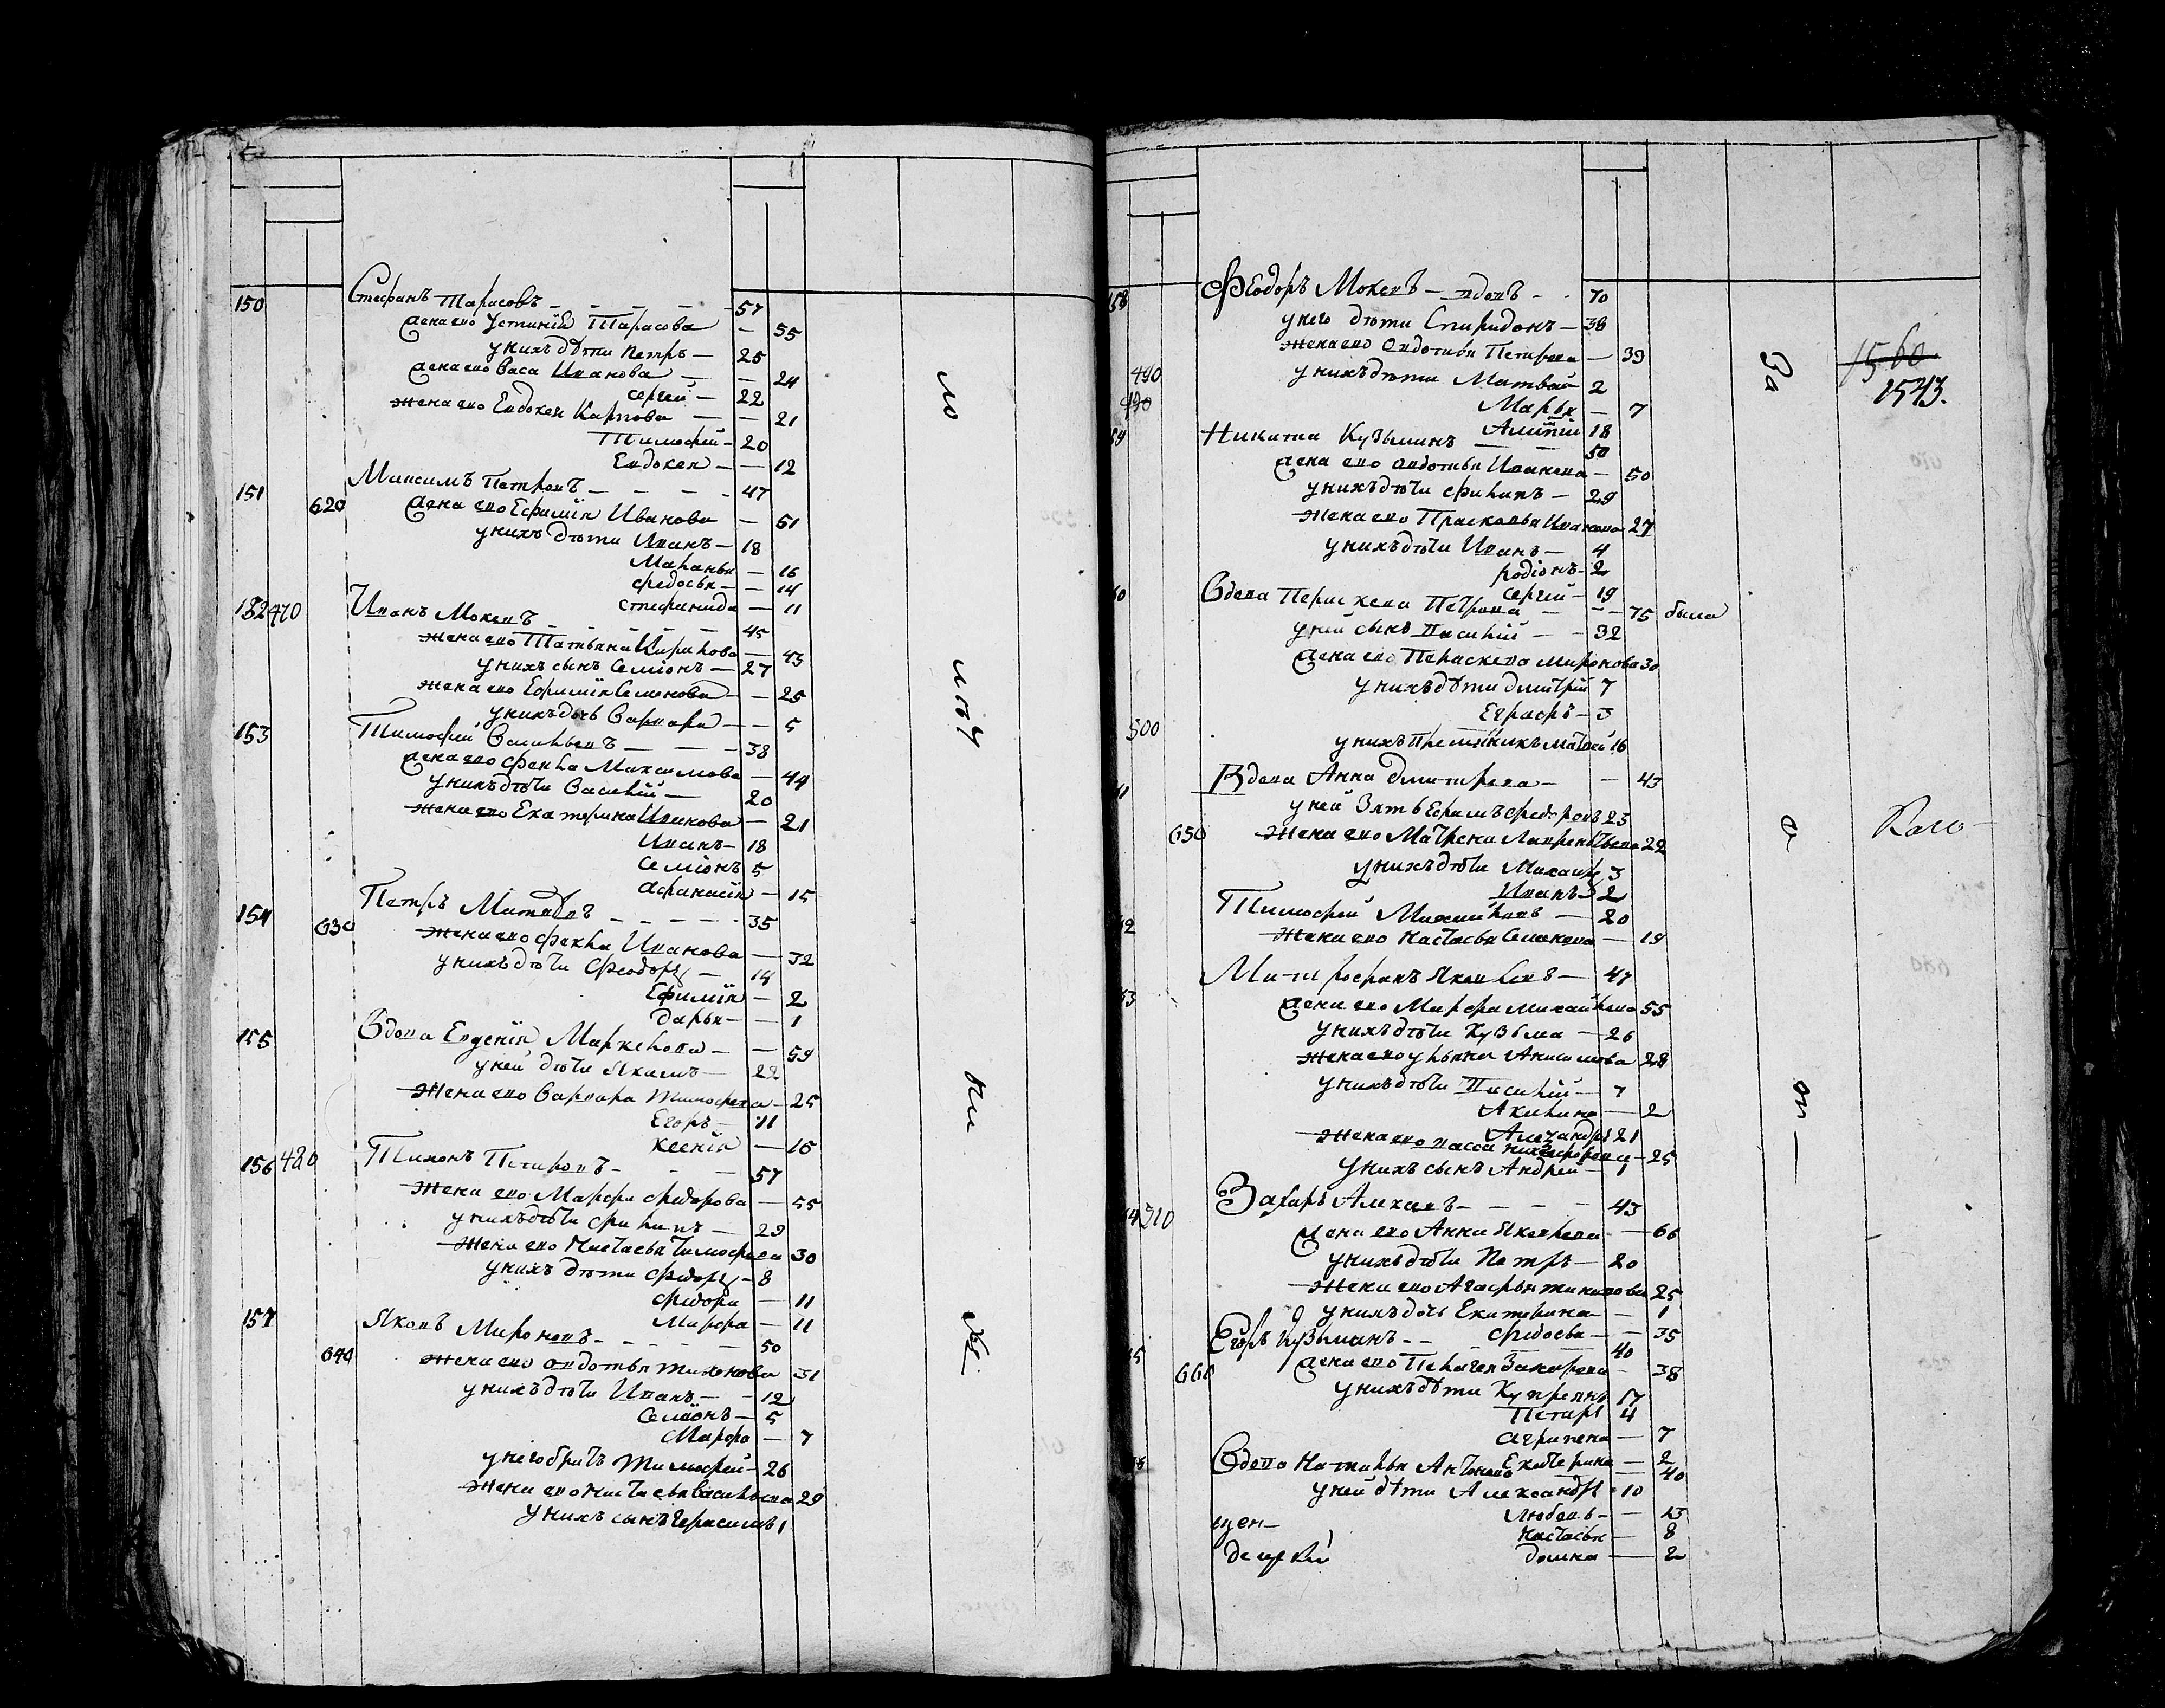 150 Стефанъ Тарасовъ — 57
жена ево Устинія Тарасова — 55
у нихъ дѣти Петръ — 25
жена ево Васа Иванова — 24
Сергей — 22
жена ево Евдокея Карпова — 21
Тимофей — 20
Евдокея — 12
151 Максимъ Петровъ — 47
620 жена ево Ефимія Иванова — 51
у нихъ дѣти Иванъ — 18
Маланья — 16
Федосья — 14
Стефанида — 11
152 470 Иванъ Мокеевъ — 45
жена ево Татьяна Кирилова — 43
у нихъ сынъ Семіонъ — 27
жена ево Ефимія Семенова — 25
у нихъ дочь Варвара — 5
153 Тимофей Васильевъ — 38
жена ево Фекла Максимова — 44
у нихъ дѣти Василій — 20
жена ево Екатерина Иванова — 21
Иванъ — 18
Семіонъ 5
Афанасія — 15
154 Петръ Матвѣевъ — 35
630 жена ево Фекла Иванова — 32
у нихъ дѣти Феодоръ — 14
Ефимія — 2
Дарья — 1
155 Вдова Евгенія Маркелова — 59
у ней дѣти Якимъ — 22
жена ево Варвара Тимофеева — 25
Егоръ — 11
Ксенія — 16
156 480 Тихонъ Петровъ — 57
жена ево Марфа Федорова — 55
у нихъ дѣти Филипъ — 29
жена ево Настасья Тимофеева 30
у нихъ дѣти Федоръ — 8
Федора — 11
Марфа — 11
157 Яковъ Мироновъ — 50
640 жена ево Овдотья Тихонова 31
у нихъ дѣти Иванъ — 12
Семіонъ — 5
Марфа — 7
у него братъ Тимофей — 26
жена ево Настасья Васильева 29
у нихъ сынъ Герасимъ 1
158 Феодоръ Мокеевъ — вдовъ — 70
у него дѣти Спиридонъ — 38
жена ево Овдотья Петрова — 39
490 у нихъ дѣти Матвѣй 2
490 Марья — 7
18
59 Никита Кузьминъ — 50
жена ево Овдотья Иванова — 50
у нихъ дѣти Филипъ — 29
жена ево Прасковья Иванова 27
у нихъ дѣти Иванъ — 4
Родіонъ — 2
Сергей — 19
60 Вдова Пераскева Петрова — 75 была
у ней сынъ Василій — 32
жена ево Пераскева Миронова 30
у нихъ дѣти Дмитрій 7
Евграфъ — 3
500 у нихъ племяникъ Матвей 16
Вдова Анна Дмитрева — 43
у ней зять Ефимъ Федоровъ 23
650 жена ево Матрена Лаврентьева 22
у нихъ дѣти Михаилъ 3
Иванъ 2
Тимофей Михайловъ — 20
жена ево Настасья Семенова — 19
Митрофанъ Яковлевъ — 47
жена ево Марфа Михайлова 55
у нихъ дѣти Кузьма — 26
жена ево Ульяна Анисимова 28
у нихъ дѣти Василій — 7
Акилина — 2
Алеѯандръ 21
жена ево Васса Никифорова — 25
у нихъ сынъ Андрей — 1
510 Захаръ Алексеевъ — 43
жена ево Анна Яковлева — 66
у нихъ дѣти Петръ — 20
жена ево Агафья 25
у нихъ дочь Екатерина — 1
Федосья — 35
Егоръ Кузьминъ — 40
660 жена ево Пелагея Захарова — 38
у нихъ дѣти Купреянъ 17
Петръ 4
Агрипена — 7
Екатерина — 2
Вдова Наталья Антонова — 40
у ней дѣти Александръ 10
Любовь — 13
Настасья — 8
Домна — 2
щен—
децкій
За
1560
1543.